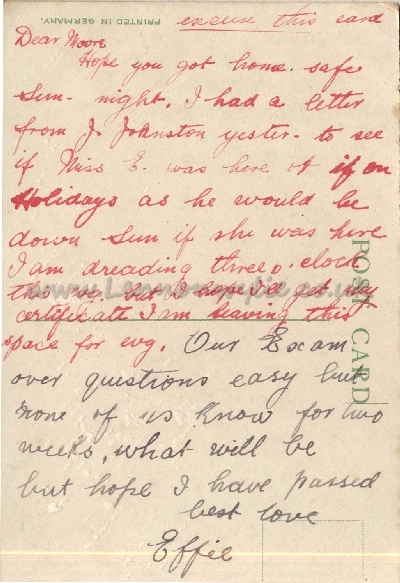 PRINTED IN GERMANY.
excuse this card
Dear Moore
Hope you got home. safe
Sun. night. I had a letter
from J. Johnston yester. to see
if Miss E. was here at if on
Holidays as he would be
down Sun if she was here
I am dreading three o. clock
this evg. but I hope I'd get my
certificate I am leaving this
space for evg. Our Exam
over questions easy but
none of us know for two
weeks, what will be
but hope I have passed
best love
Effie
POST CARD